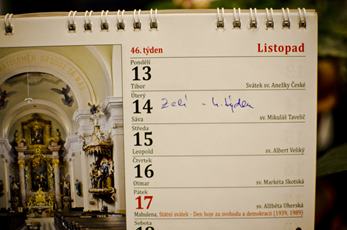 46. týden Listopad
Pondělí
13
Tibor Svátek sv. Anežky České
Úterý
14 Zelí - 4. týden
Sáva sv. Mikuláš Tavelič
Středa
15
Leopold sv. Albert Veliký
Čtvrtek
16
Otmar sv. Markéta Skotská
Pátek
17 sv. Alžběta Uherská
Mahulena, Státní svátek - Den boje za svobodu a demokracii (1939, 1989)
Sobota
18